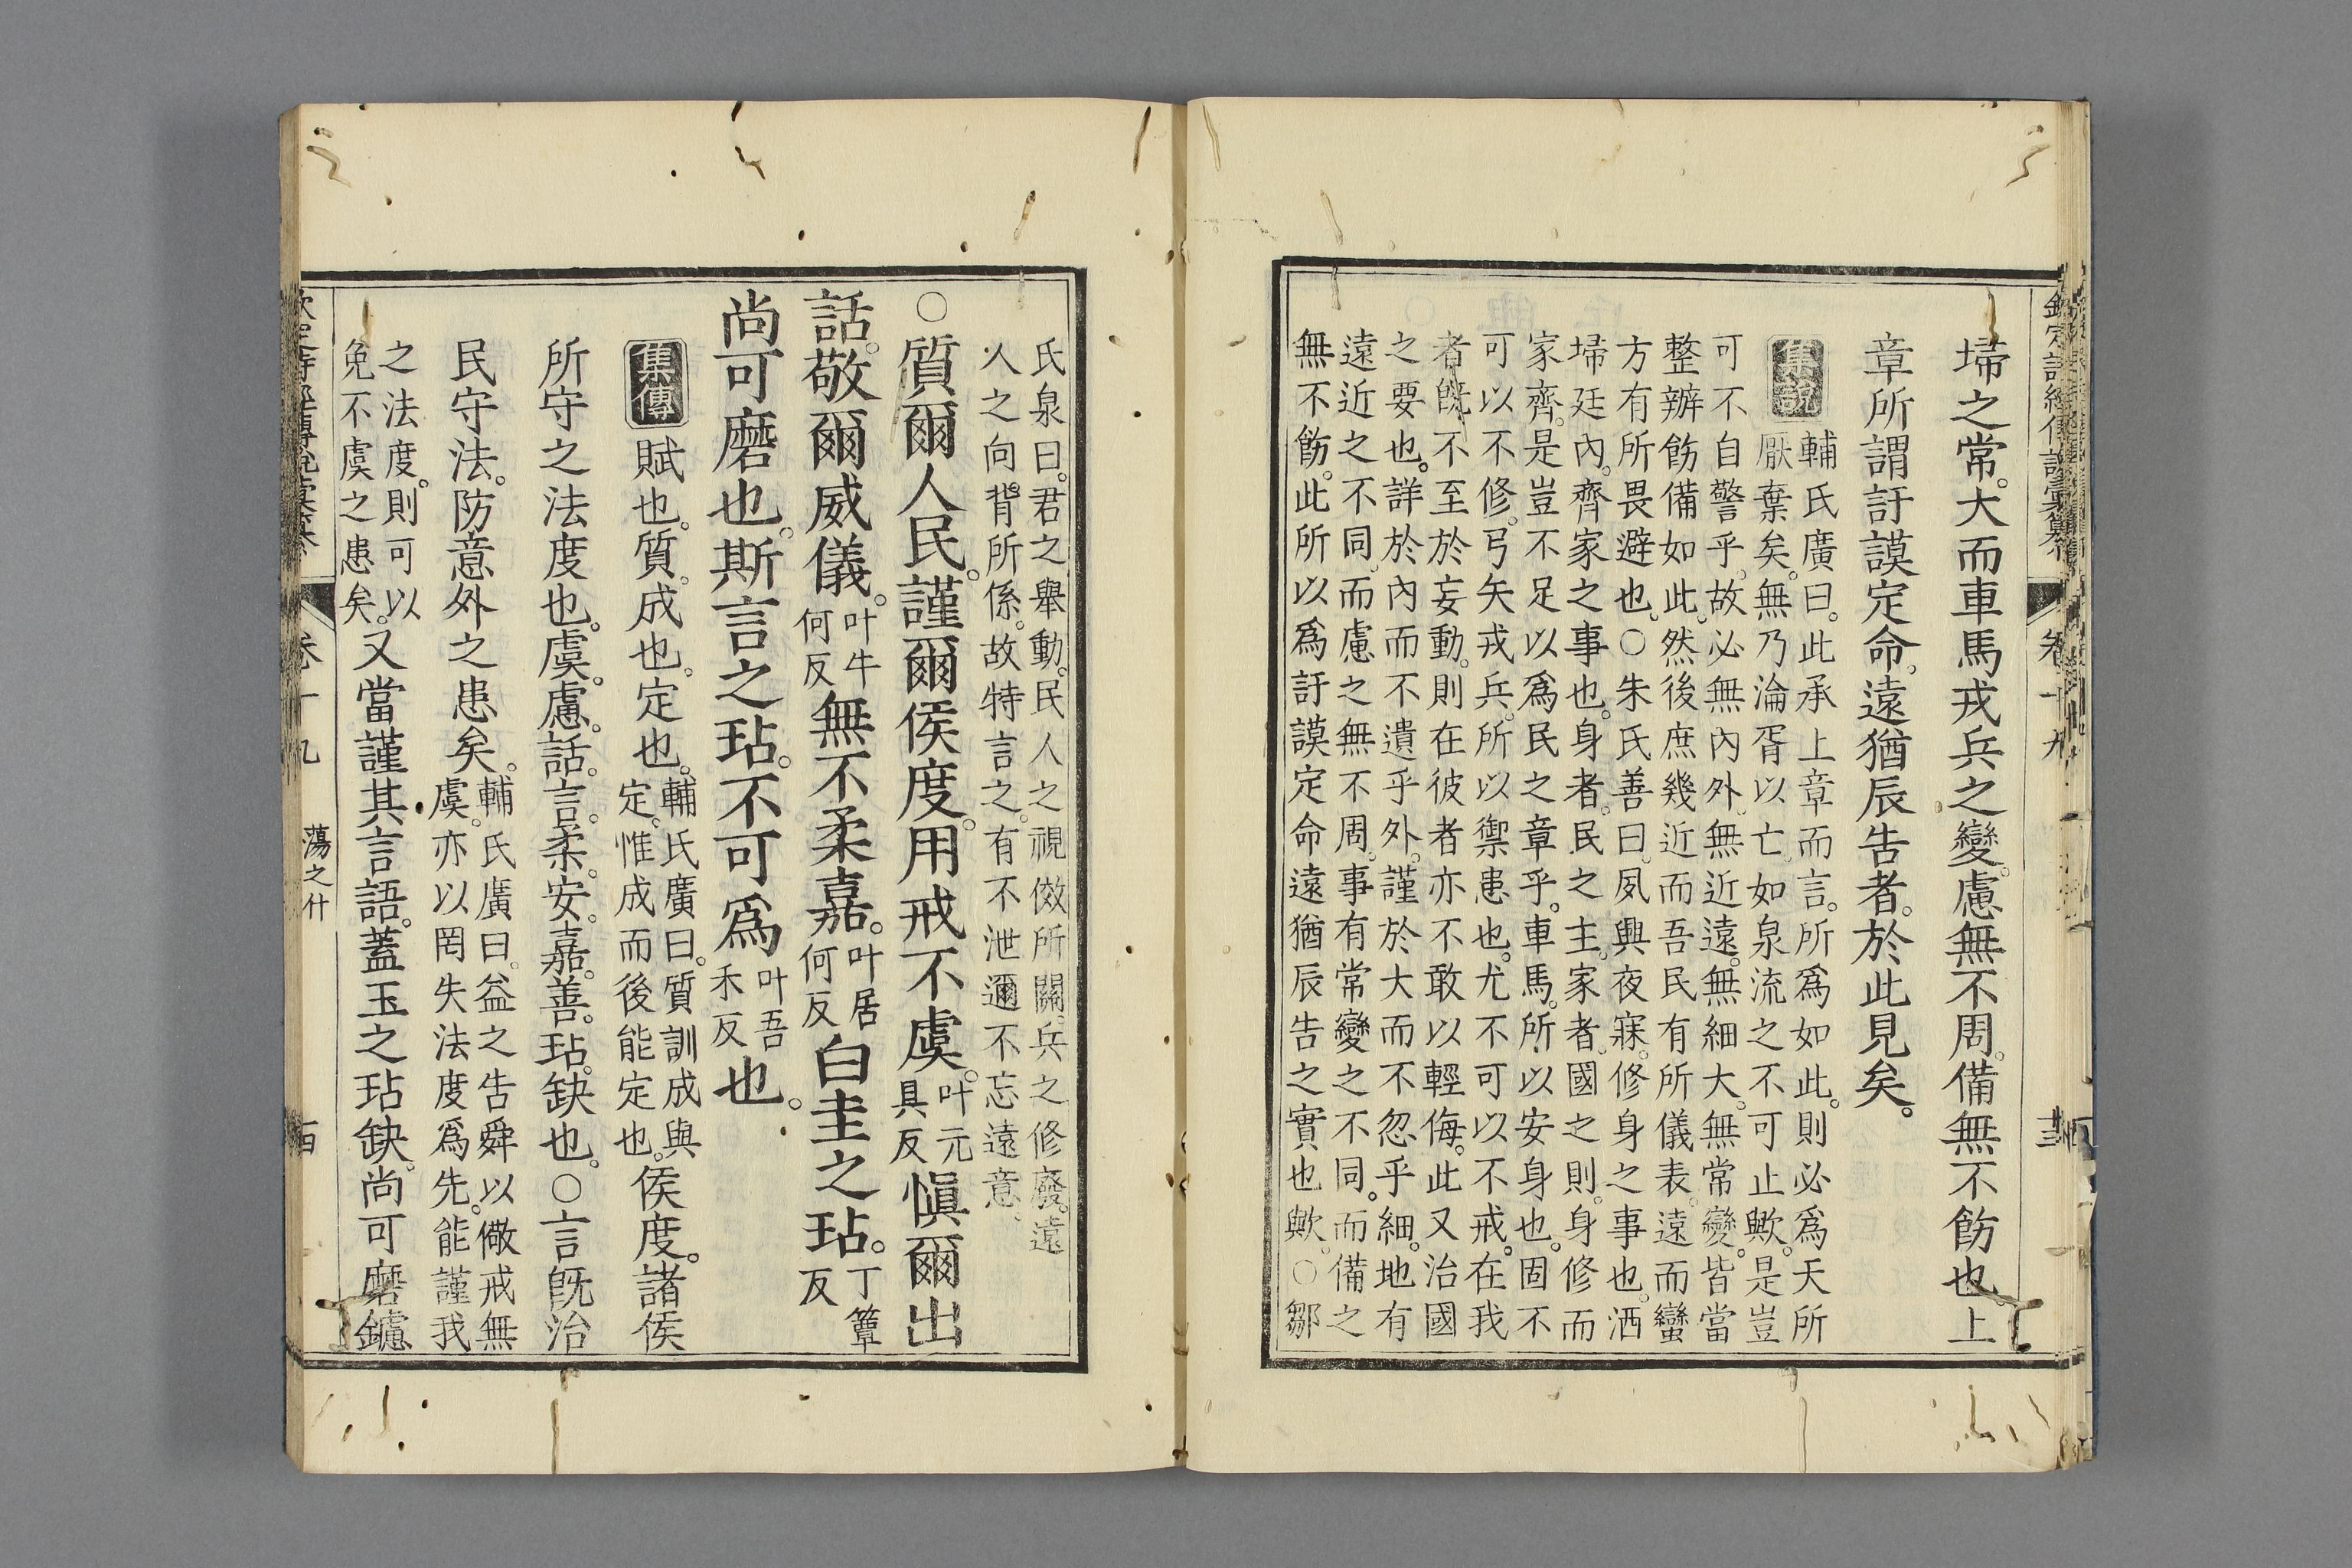 埽之常。大而車馬戎兵之變。慮無不周。備無不飭也。上
章所謂訏謨定命。遠猶辰告者。於此見矣。
集說
輔氏廣曰。此承上章而言。所爲如此。則必爲天所
厭棄矣。無乃淪胥以亡。如泉流之不可止歟。是豈
可不自警乎。故必無內外。無近遠。無細大。無常變。皆當
整辦飭備如此。然後庶幾近而吾民有所儀表。遠而蠻
方有所畏避也。○朱氏善曰。夙興夜寐。修身之事也。洒
埽廷內。齊家之事也。身者。民之主。家者。國之則。身修而
家齊。是豈不足以爲民之章乎。車馬。所以安身也。固不
可以不修。弓矢戎兵。所以禦患也。尤不可以不戒。在我
者旣不至於妄動。則在彼者亦不敢以輕侮。此又治國
之要也。詳於內而不遺乎外。謹於大而不忽乎細。地有
遠近之不同。而慮之無不周。事有常變之不同。而備之
無不飭。此所以爲訏謨定命遠猶辰告之實也歟。○鄒
氏泉曰。君之舉動。民人之視傚所關。兵之修廢。遠
人之向背所係。故特言之。有不泄邇不忘遠意。
○質爾人民。謹爾侯度。用戒不虞。叶元具反愼爾出
話。敬爾威儀。叶牛何反無不柔嘉。叶居何反白圭之玷。丁簟反
尚可磨也。斯言之玷。不可爲叶吾禾反也。
集傳
賦也。質。成也。定也。輔氏廣曰。質訓成與定。惟成而後能定也。侯度。諸侯
所守之法度也。虞。慮。話。言。柔。安。嘉。善。玷。缺也。○言旣治
民守法。防意外之患矣。輔氏廣曰。益之告舜以儆戒無虞。亦以罔失法度爲先。能謹我
之法度。則可以免不虞之患矣。又當謹其言語。蓋玉之玷缺。尚可磨鑢
卷十九
蕩之什